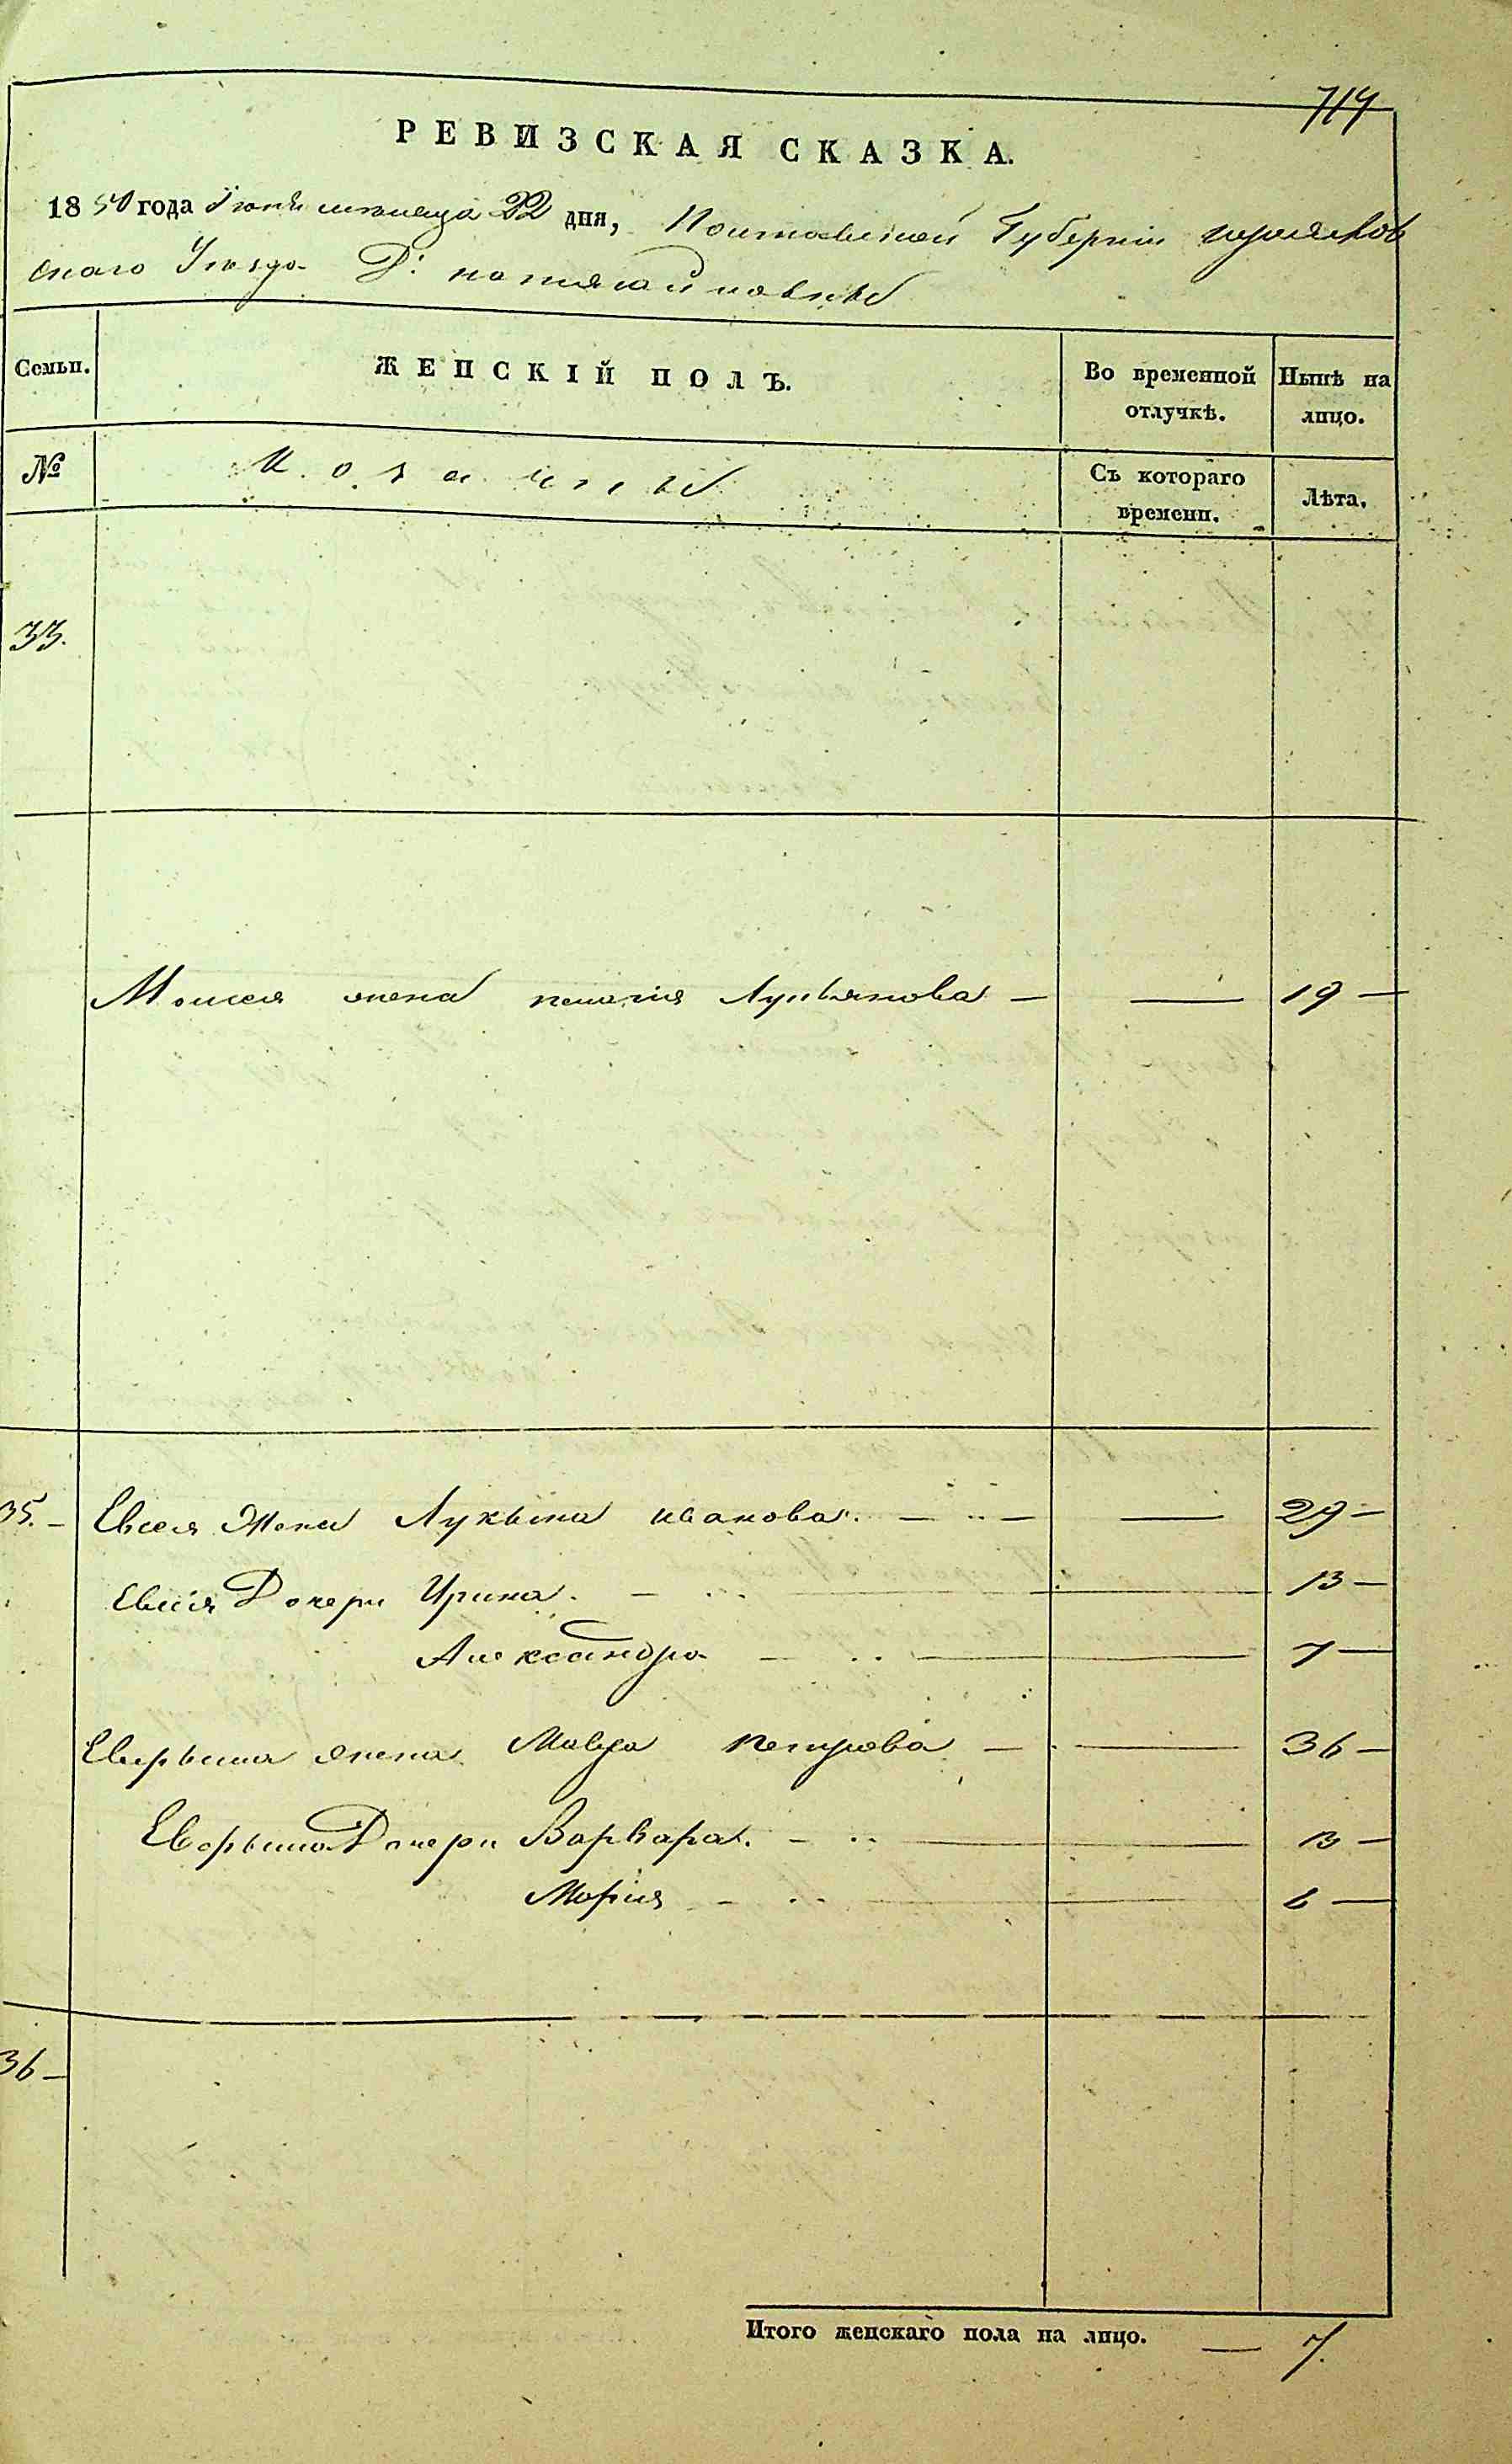 714
РЕВИЗСКАЯ СКАЗКА.
1850 года Іюня месяца 22 дня, Полтавской Губерніи
скаго Уезда Д:
Семьи.
ЖЕНСКІЙ ПОЛЪ.
Во временной отлучкѣ.
Нынѣ на лицо.
№
Съ котораго времени.
Лѣта.
33.
Моисея жена Пелагия Лукьянова — — 19 —
35. — Евсея Жена Лукьяна Иванова. — — 29 —
Евсѣя Дочери Ирина. — — 13 —
Александра — — 7 —
жена Мавра Петрова — — 36 —
Дочери Варвара. — — 13 —
Мария — — 6 —
36 —
Итого женскаго пола на лицо. — 7.